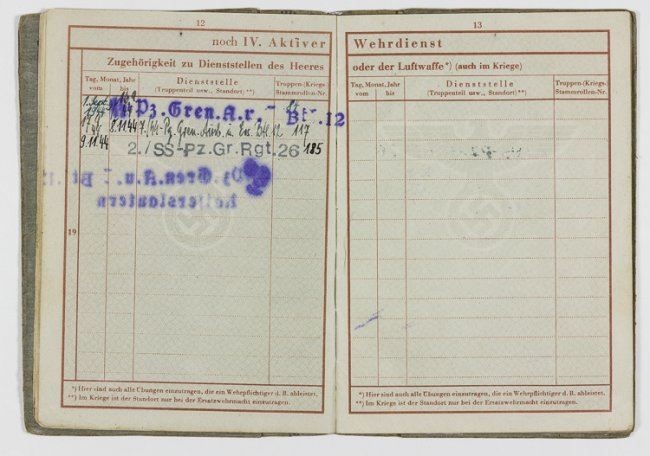 12
noch IV. Aktiver
Zugehörigkeit zu Dienststellen des Heeres
Tag, Monat, Jahr
vom bis
Dienststelle
(Truppenteil usw., Standort) **)
Truppen-(Kriegs-)
Stammrollen-Nr.
Pz. Gren. A. r. - Btl. 12
8.11.44 7./SS-Pz. Gren. Ausb. u. Ers. Btl. 12 117
9.11.44
2./SS-Pz.Gr.Rgt.26 185
19
*) Hier sind auch alle Übungen einzutragen, die ein Wehrpflichtiger d. B. ableistet.
**) Im Kriege ist der Standort nur bei der Ersatzwehrmacht einzutragen.
13
Wehrdienst
oder der Luftwaffe*) (auch im Kriege)
Tag, Monat, Jahr
vom bis
Dienststelle
(Truppenteil usw., Standort) **)
Truppen-(Kriegs-)
Stammrollen-Nr.
*) Hier sind auch alle Übungen einzutragen, die ein Wehrpflichtiger d. B. ableistet.
**) Im Kriege ist der Standort nur bei der Ersatzwehrmacht einzutragen.